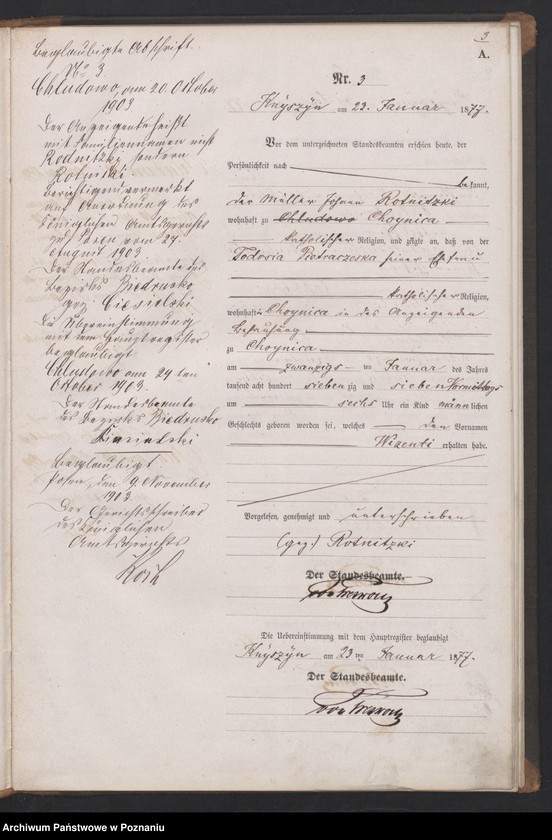 3
A.
Beglaubigte Abschrift.
No 3.
Chludowo, am 20. Oktober
1903
Der Anzeigende heißt
mit Familiennamen nicht
Rodnitzki, sondern
Rotnicki
Berichtigendvermerkt
auf Anordnung des
Königlichen Amtsgerichts
zu Posen vom 24.
August 1903
Der Standesbeamte des
Bezirks Biedrusko
gez. Ciesielski
Die Übereinstimmung
mit dem Hauptregister
beglaubigt
Chludowo am 24 ten
Oktober 1903.
Der Standesbeamte
des Bezirks Biedrusko
Ciesielski
Beglaubigt
Posen, den 9. November
1903
Der Gerichtsschreiber
des Königlichen
Amtsgerichts
Koch
Nr. 3
am 23. Januar 1877.
Vor dem unterzeichneten Standesbeamten erschien heute, der
Persönlichkeit nach
bekannt,
der Müller Johann Rotnitzki
wohnhaft zu Chludowo Choynica
katholischer Religion, und zeigte an, daß von der
Pietraczeska seiner Ehefrau
katholischer Religion,
wohnhaft Choynica in des Anzeigenden
Behausung
zu Choynica
am zwanzigsten Januar des Jahres
tausend acht hundert siebenzig und sieben Vormittags
um sechs Uhr ein Kind männlichen
Geschlechts geboren worden sei, welches den Vornamen
Wizenti erhalten habe.
Vorgelesen, genehmigt und unterschrieben
(gez.) Rotnitzki
Der Standesbeamte.
Die Uebereinstimmung mit dem Hauptregister beglaubigt
am 23 ten Januar 1877.
Der Standesbeamte.
Archiwum Państwowe w Poznaniu